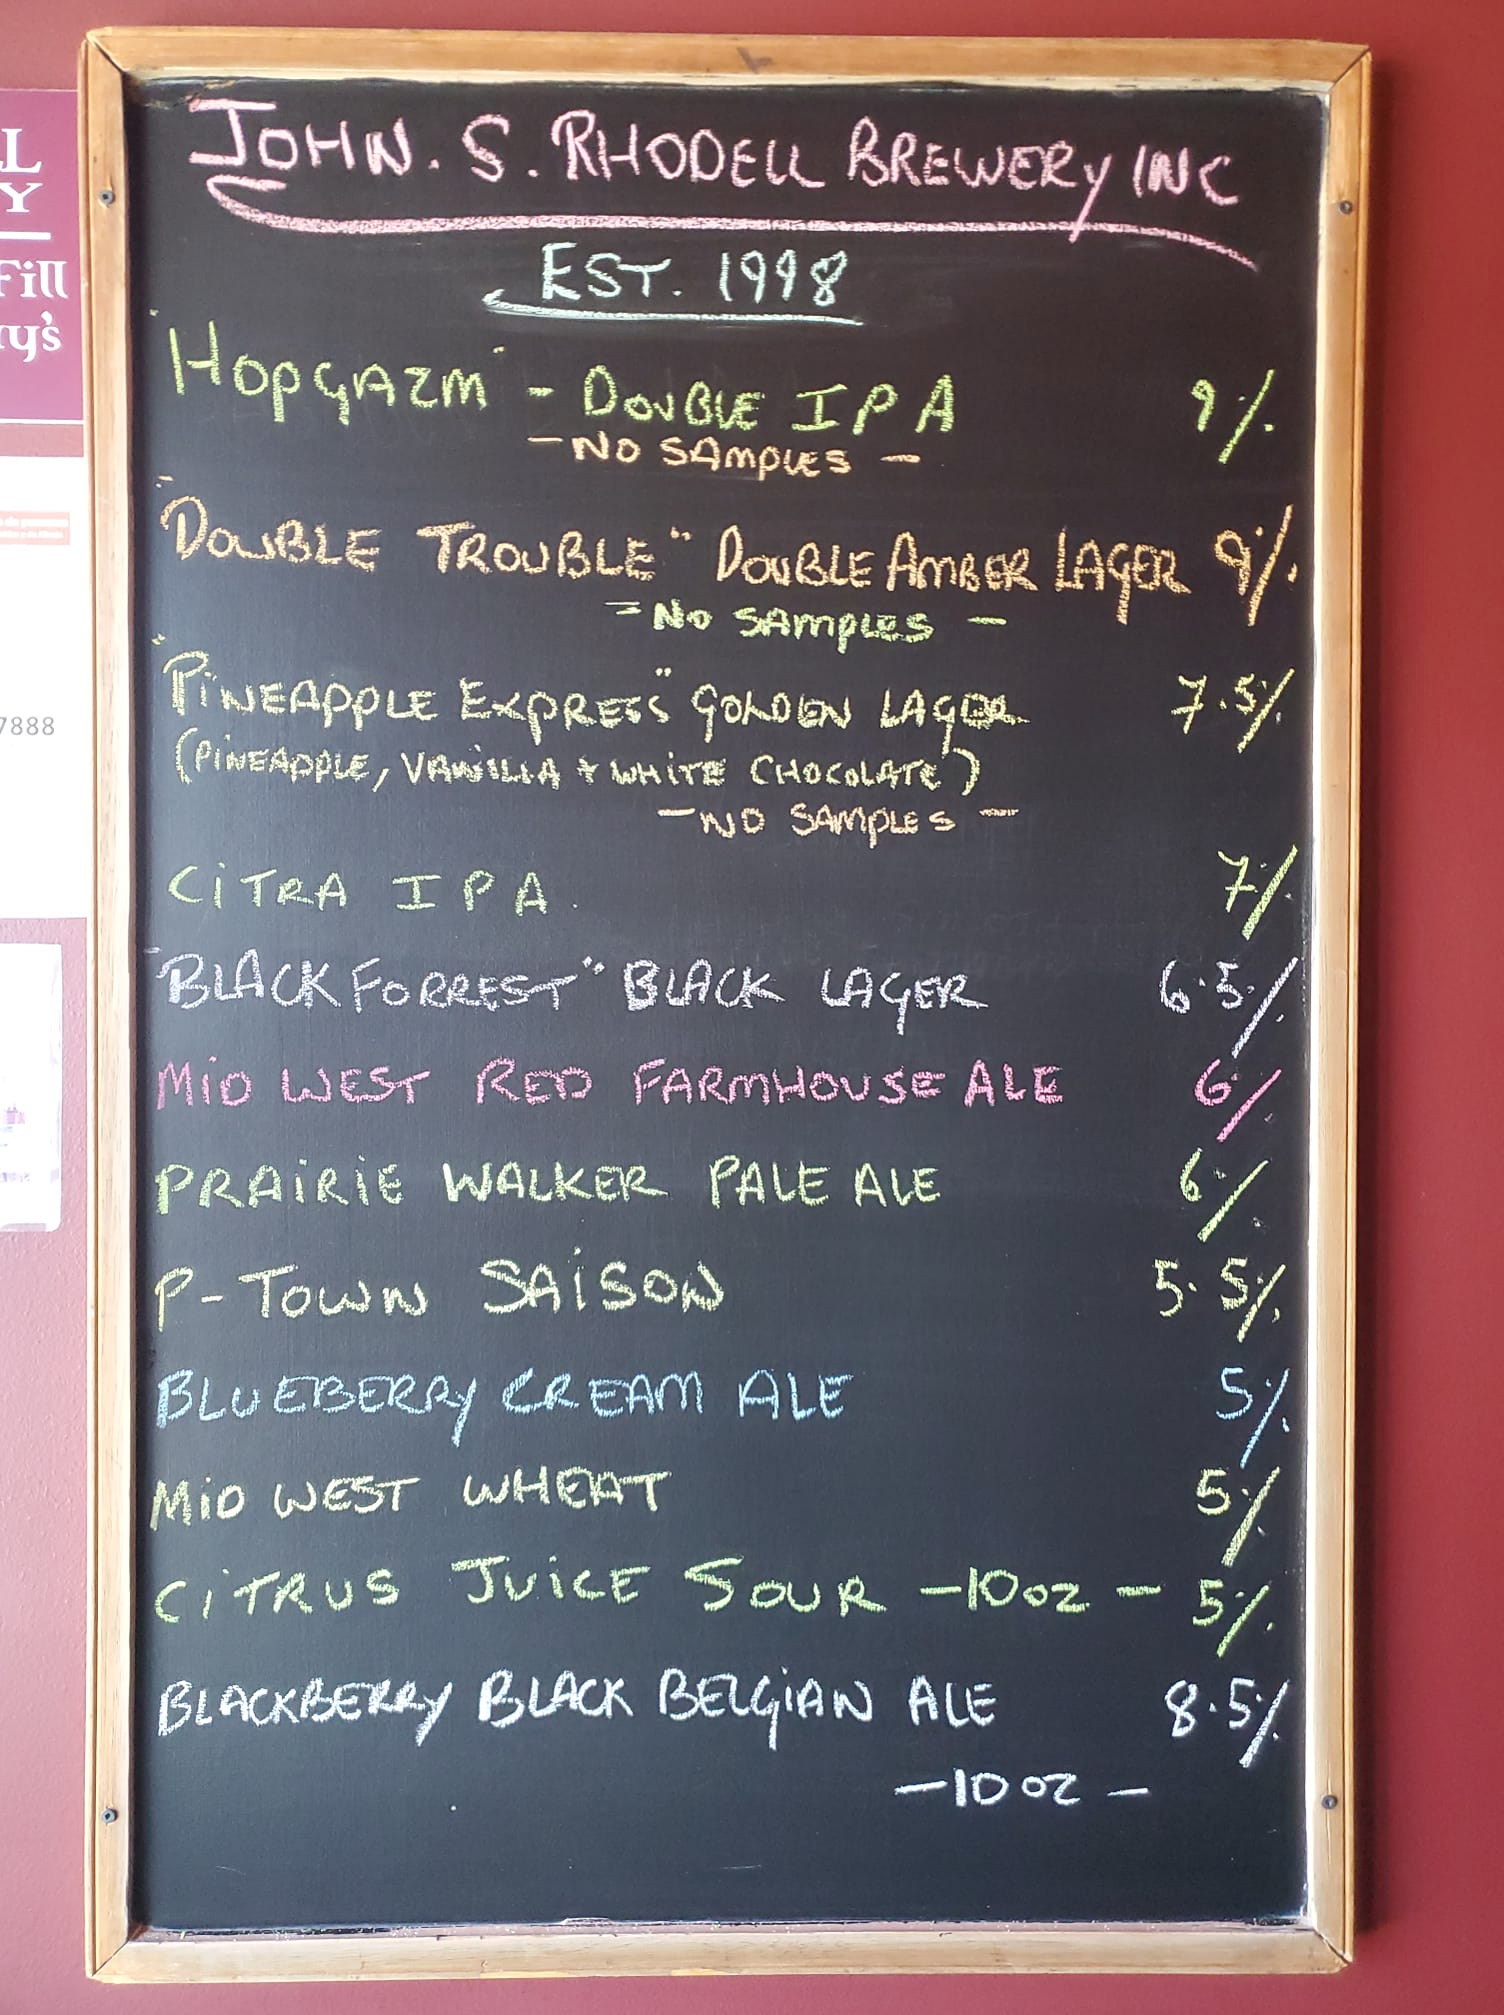 JOHN. S. RHODELL BREWERY INC
EST. 1998
"HOPGAZM" - DOUBLE IPA 9%
- NO SAMPLES -
"DOUBLE TROUBLE" DOUBLE AMBER LAGER 9%
= NO SAMPLES -
"PINEAPPLE EXPRESS" GOLDEN LAGER 7.5%
(PINEAPPLE, VANILLA + WHITE CHOCOLATE)
- NO SAMPLES -
CITRA IPA 7%
"BLACK FORREST" BLACK LAGER 6.5%
MID WEST RED FARMHOUSE ALE 6%
PRAIRIE WALKER PALE ALE 6%
P-TOWN SAISON 5.5%
BLUEBERRY CREAM ALE 5%
MID WEST WHEAT 5%
CITRUS JUICE SOUR -10oz- 5%
BLACKBERRY BLACK BELGIAN ALE 8.5%
-10oz-
Fill
7888